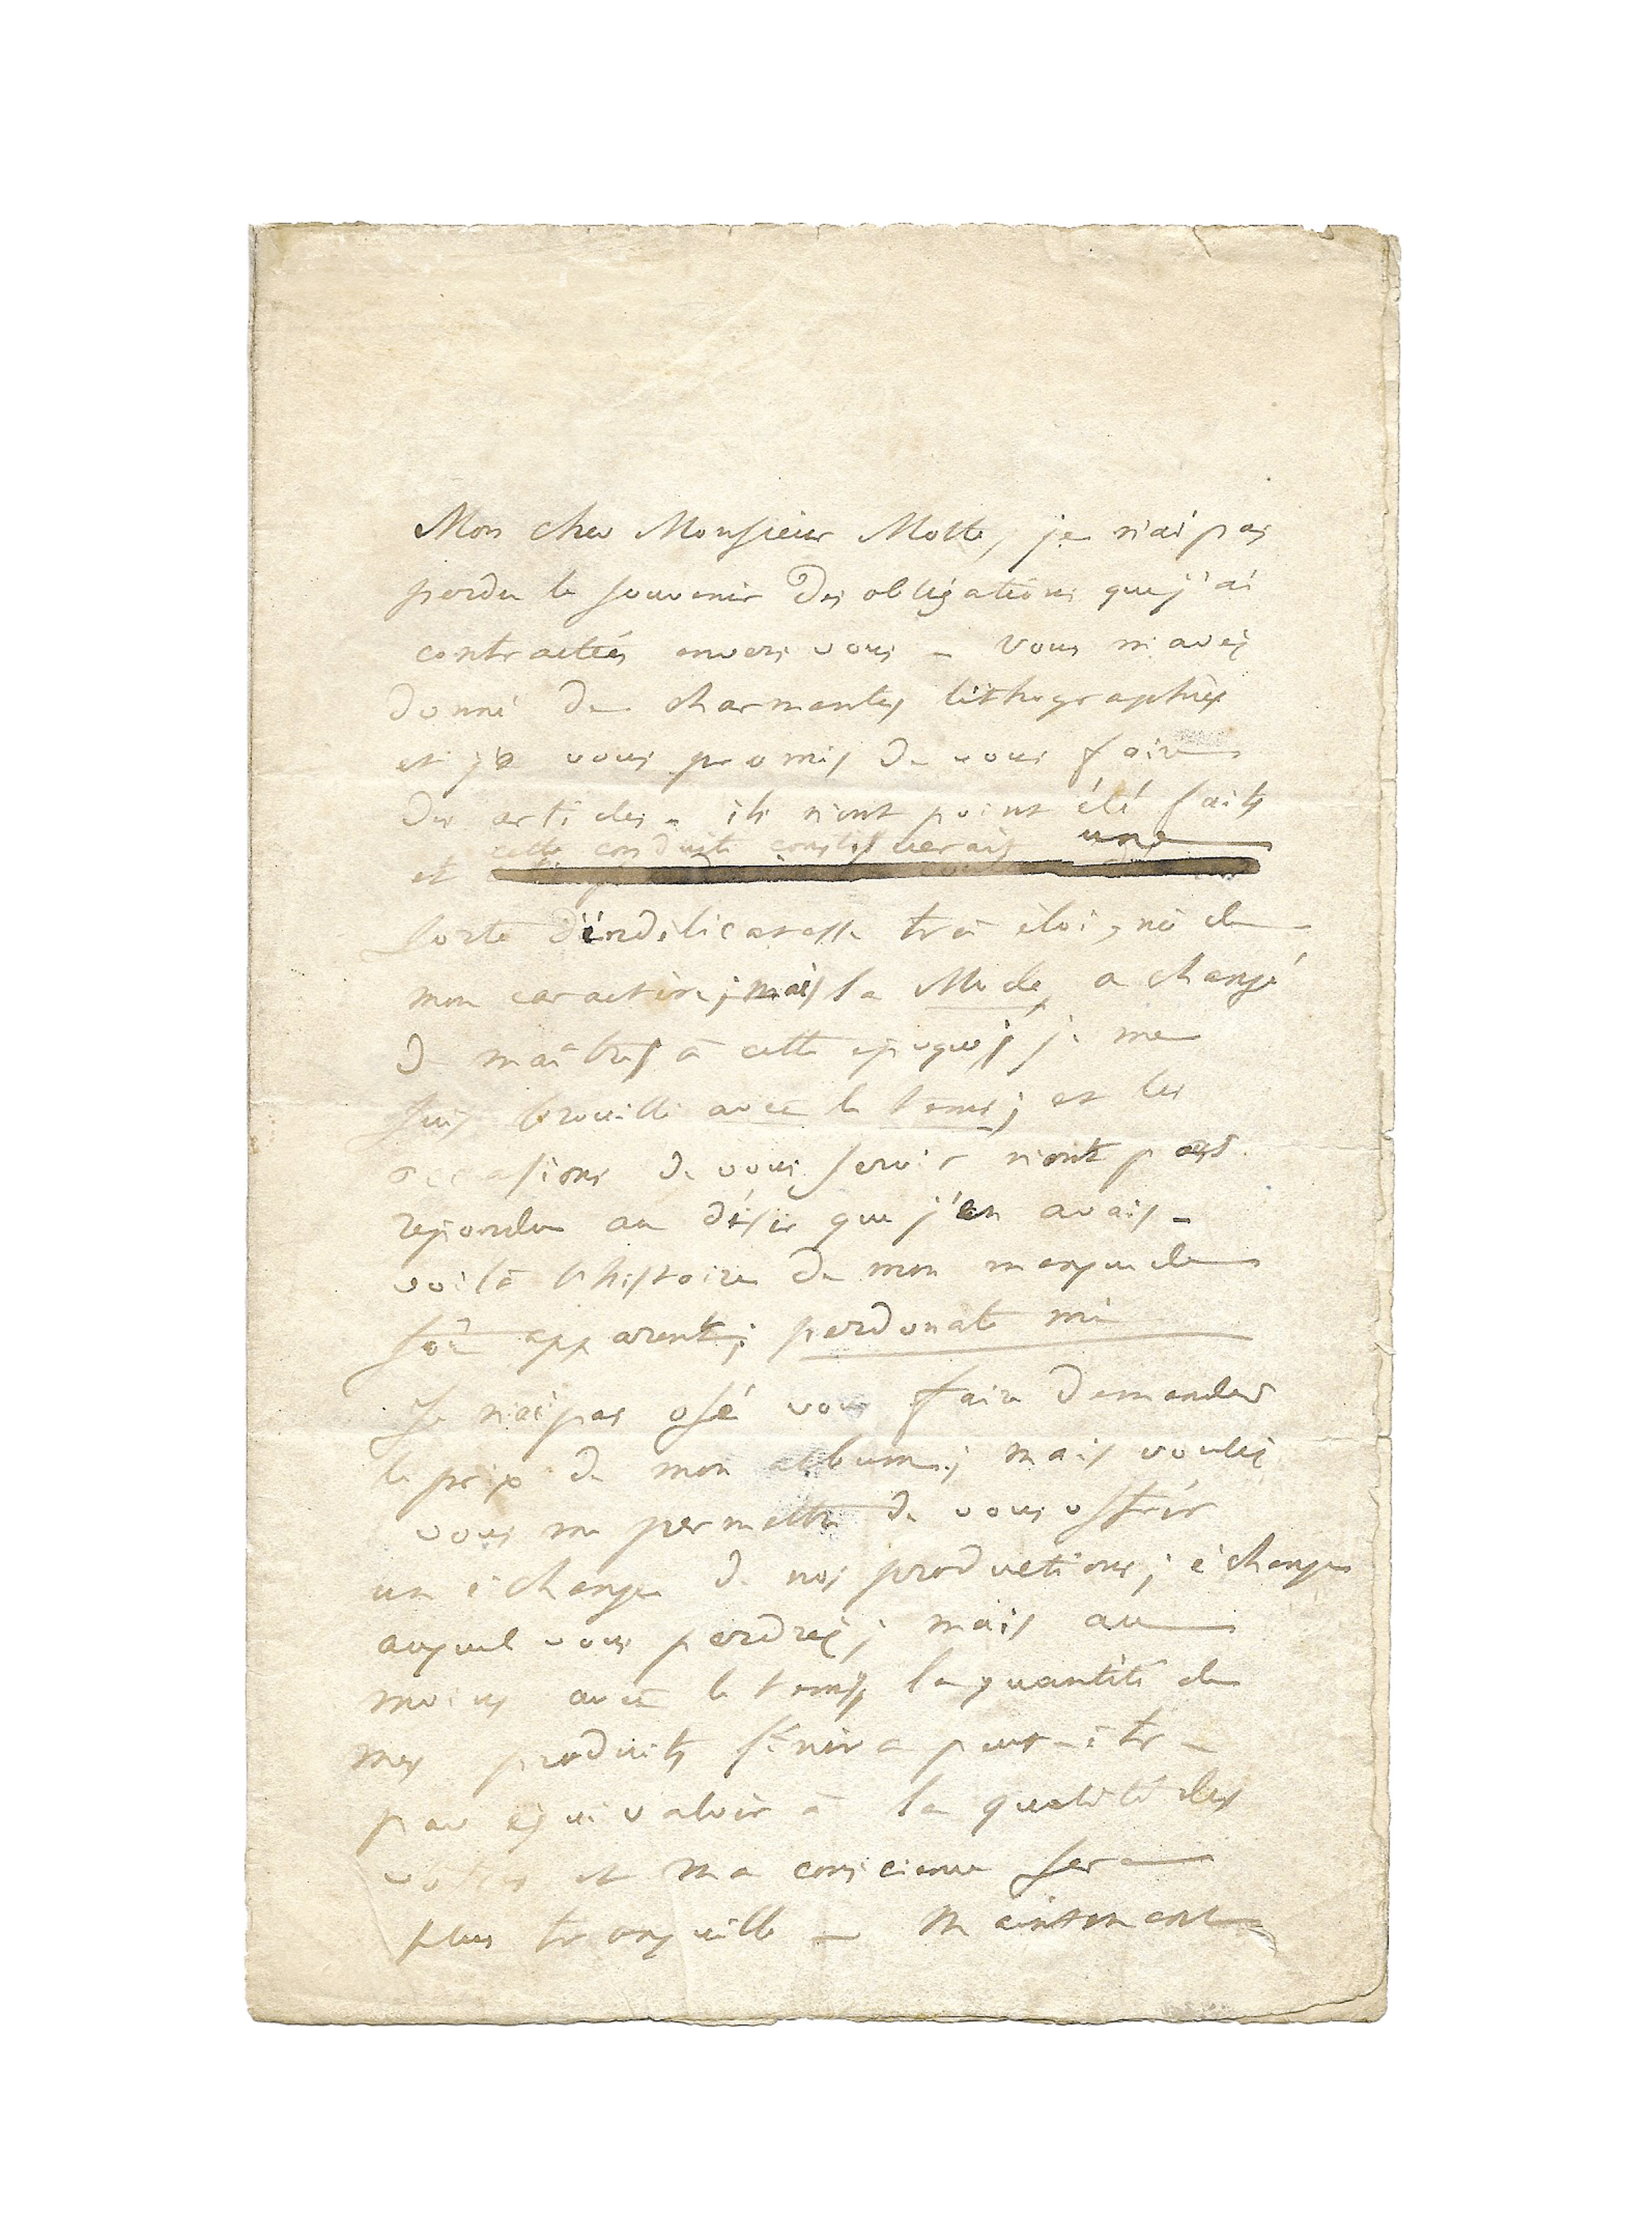 Mon cher Monsieur Motte, je n'ai pas
perdu le souvenir des obligations que j'ai
contractées envers vous – Vous m'avez
donné de charmantes lithographies
et je vous promis de vous faire
des articles – ils n'ont point été faits
cette conduite constituerait une
et
sorte d'indélicatesse très éloigné de
mon caractère; mais la Mode, a changé
de maîtres à cette époque; je me
suis brouillé avec le temps; et les
occasions de vous servir n'ont pas
repondu au désir que j'en avais –
voilà l'histoire de mon manque de
foi apparent; perdonate mi
Je n'ai pas osé vous faire demander
le prix de mon album; mais voulez
vous me permettre de vous offrir
un échange de nos productions; échange
auquel vous perdrez; mais au
moins avec le temps, la quantité de
mes produits finira peut-être
par équivaloir à la qualité des
votres et ma conscience sera
plus tranquille – Maintenant